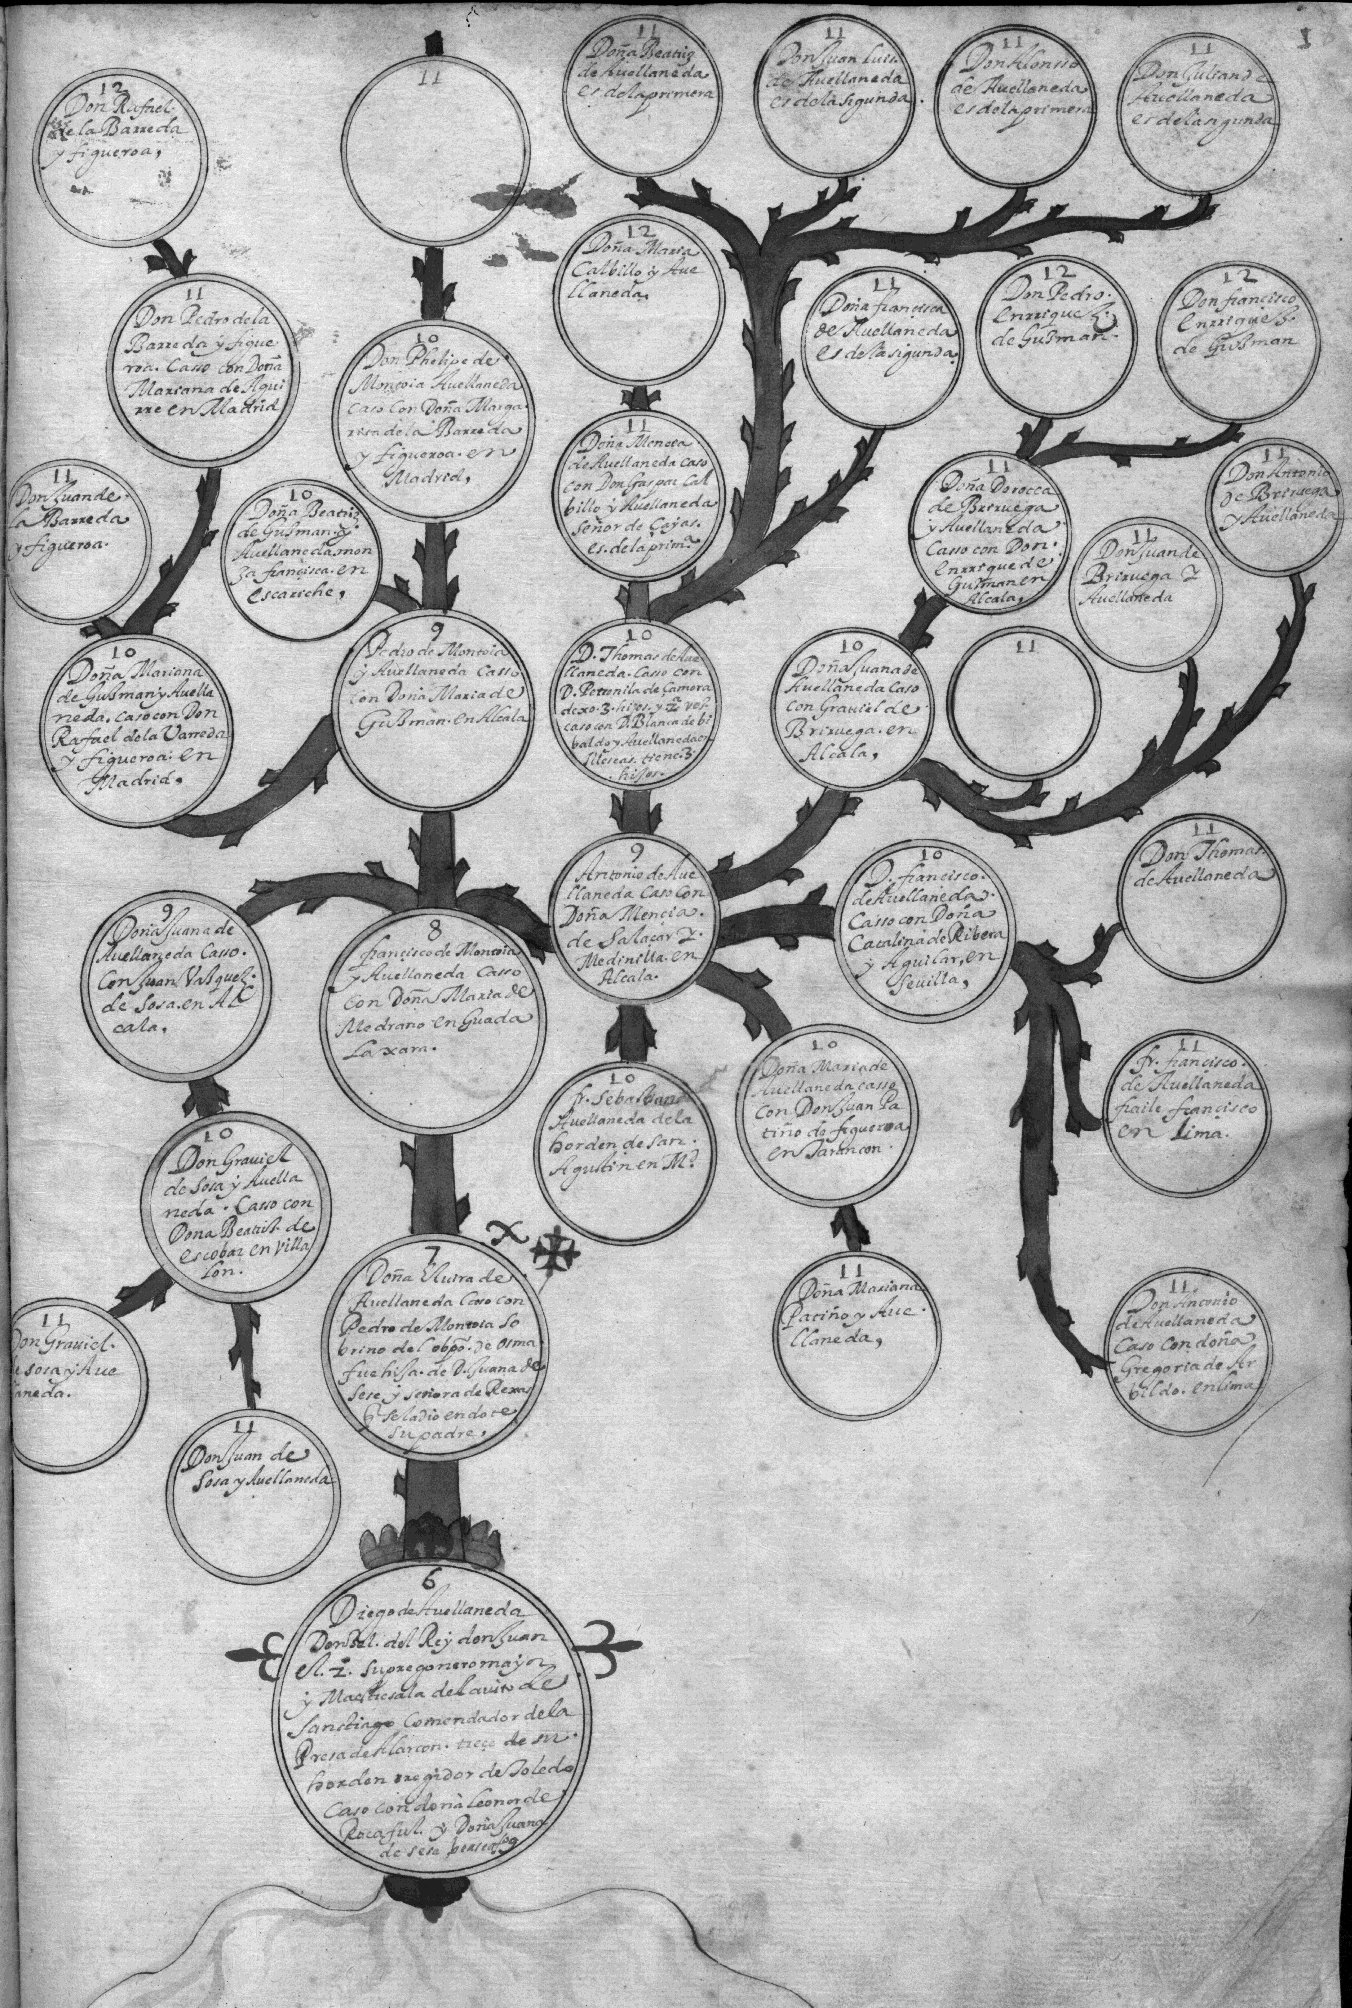 12
Don Rafael
de la Barreda
y figueroa,
11
11
Doña Beatriz
de Auellaneda
es de la primera
11
Don Juan Luis
de Auellaneda
es de la segunda.
11
Don Alonso
de Auellaneda
es de la primera
11
Don Julian de
Auellaneda
es de la segunda
1
11
Don Pedro de la
Barreda y figue
roa. Casso con Doña
Mariana de Agui
rre en Madrid
10
Don Phelipe de
Montoia Auellaneda
caso con Doña Marga
rita de la Barreda
y figueroa. en
Madrid,
12
Doña Maria
Calbillo y Aue
llaneda,
11
Doña francisca
de Auellaneda
es de la sigunda.
12
Don Pedro.
enrriquez.
de Gusman.
12
Don francisco
enrriquez.
de Gusman
11
Don Juan de
la Barreda
y figueroa.
10
Doña Beatriz
de Gusman. y
Auellaneda. mon
ja francisca. en
escariche,
11
Doña Mencia
de Auellaneda caso
con Don Gaspar Cal
billo y Auellaneda
señor de Cojas.
es. de la prim.ª
11
Doña Dorotea
de Briruega
y Auellaneda
Casso con Don.
enrrique de
Gusman en
Alcala,
11
Don Juan de
Briruega y
Auellaneda
11
Don Antonio
de Briruega
y Auellaneda
10
Doña Mariana
de Gusman y Auella
neda. caso con Don
Raffael de la Varreda
y figueroa. en
Madrid,
9
Pedro de Montoia
y Auellaneda Casso
con Doña Maria de
Gusman. en Alcala
10
D. Thomas de Aue
llaneda. Casso con
D. Petronila de Gamora
dexo. 3. hijos. y 2ª vez
caso con D. Blanca de bi
baldo y Auellaneda en
Illescas. tiene. 3
hijos.
10
Doña Juana de
Auellaneda caso
con Grauiel de.
Briruega. en
Alcala,
11
9
Doña Juana de
Auellaneda Casso.
Con Juan Vasquez.
de Sosa. en Al
cala,
8
francisco de Montoia
y Auellaneda Casso
con Doña Maria de
Medrano en Guada
laxara.
9
Antonio de Aue
llaneda Caso con
Doña Mencia.
de Salaçar y.
Medinilla. en
Alcala.
10
D. francisco.
de Auellaneda.
Casso con Doña
Catalina de Ribera
y Aguilar, en
Seuilla,
11
Don Thomas.
de Auellaneda
10
Don Grauiel
de Sosa y Auella
neda. Casso con
Dona Beatriz. de
escobar en Villa
lon.
10
fr. Sebastian
Auellaneda de la
horden de san.
Agustin en M.d
10
Doña Maria de
Auellaneda casso
con Don Juan Pa
tiño de figueroa
en Tarancon.
11
fr. francisco.
de Auellaneda
fraile francisco
en Lima.
11
Don Grauiel.
de sosa y Aue
llaneda.
7
Doña Eluira de
Auellaneda Caso con
Pedro de Montoia so
brino del obpo. de Osma
fue hija. de D. Juana de
Sese, y señora de Rexas
q. se la dio en dote
su padre,
11
Doña Mariana
Patiño y Aue
llaneda,
11
Don Antonio
de Auellaneda
Caso con doña
Gregoria de Ar
bildo. en lima
11
Don Juan de
Sosa y Auellaneda
6
Diego de Auellaneda
Donzel. del Rey don Juan
el. 2º. su pregonero mayor
y Maestresala del auito de
Sanctiago Comendador de la
Presa de Alarcon. trece de su.
horden rregidor de Toledo
Caso con doña Leonor de
Rocaful. y Doña Juana
de sese